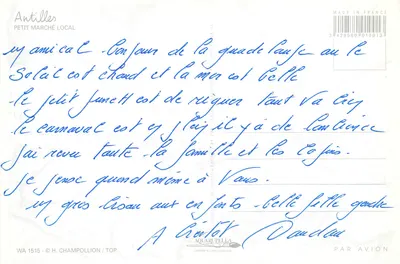 Antilles
PETIT MARCHÉ LOCAL
MADE IN FRANCE
un amical bonjour de la guadeloupe ou le
Soleil est chaud et la mer est belle
le petit punch est de rigueur tout va bien
le carnaval est en il y a de l'ambiance
j'ai revu toute la famille et les copains.
je pense quand même à vous.
un gros bisou aux enfants belle fille
A bientôt
WA 1515 - P. H. CHAMPOLLION / TOP
PAR AVION